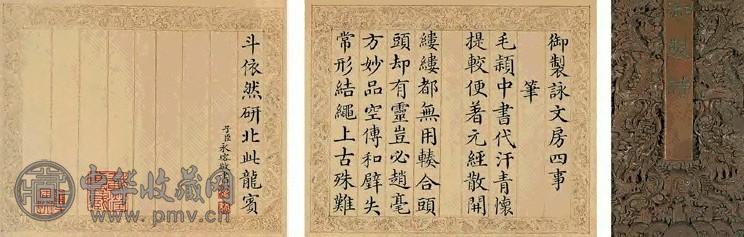 御製詠文房四事
筆
毛頴中書代汗青懷
提較便着元經散開
縷縷都無用轃合頭
頭却有靈豈必趙毫
方妙品空傳和璧失
常形結繩上古殊難
斗依然研北此龍賓
子臣永瑢敬
御製詩
中华收藏网
www.pmv.cn